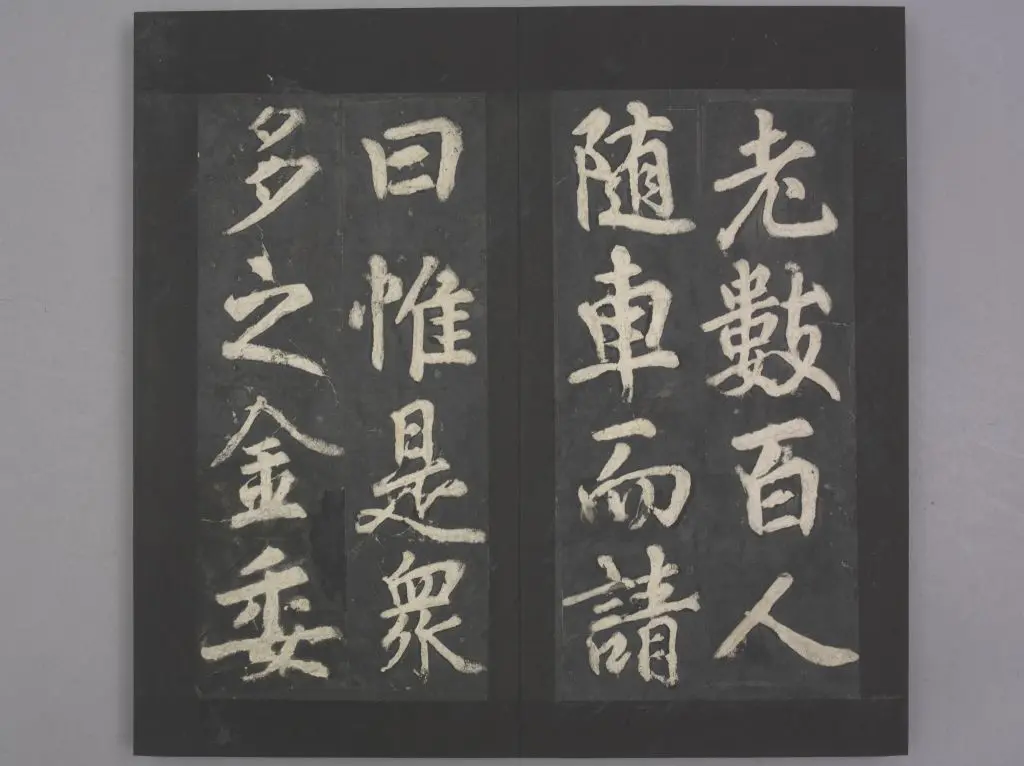 老數百人
随車而請
曰惟是衆
多之金委